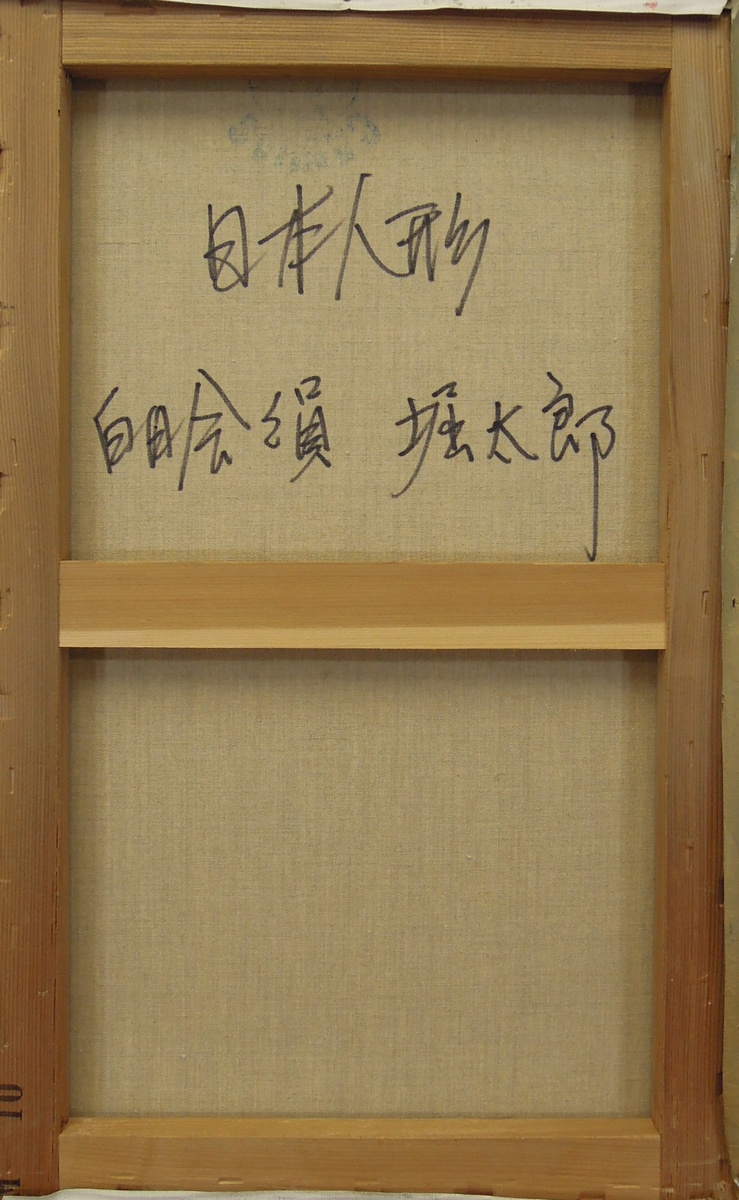 日本人形
白日会々員 堀太郎
10